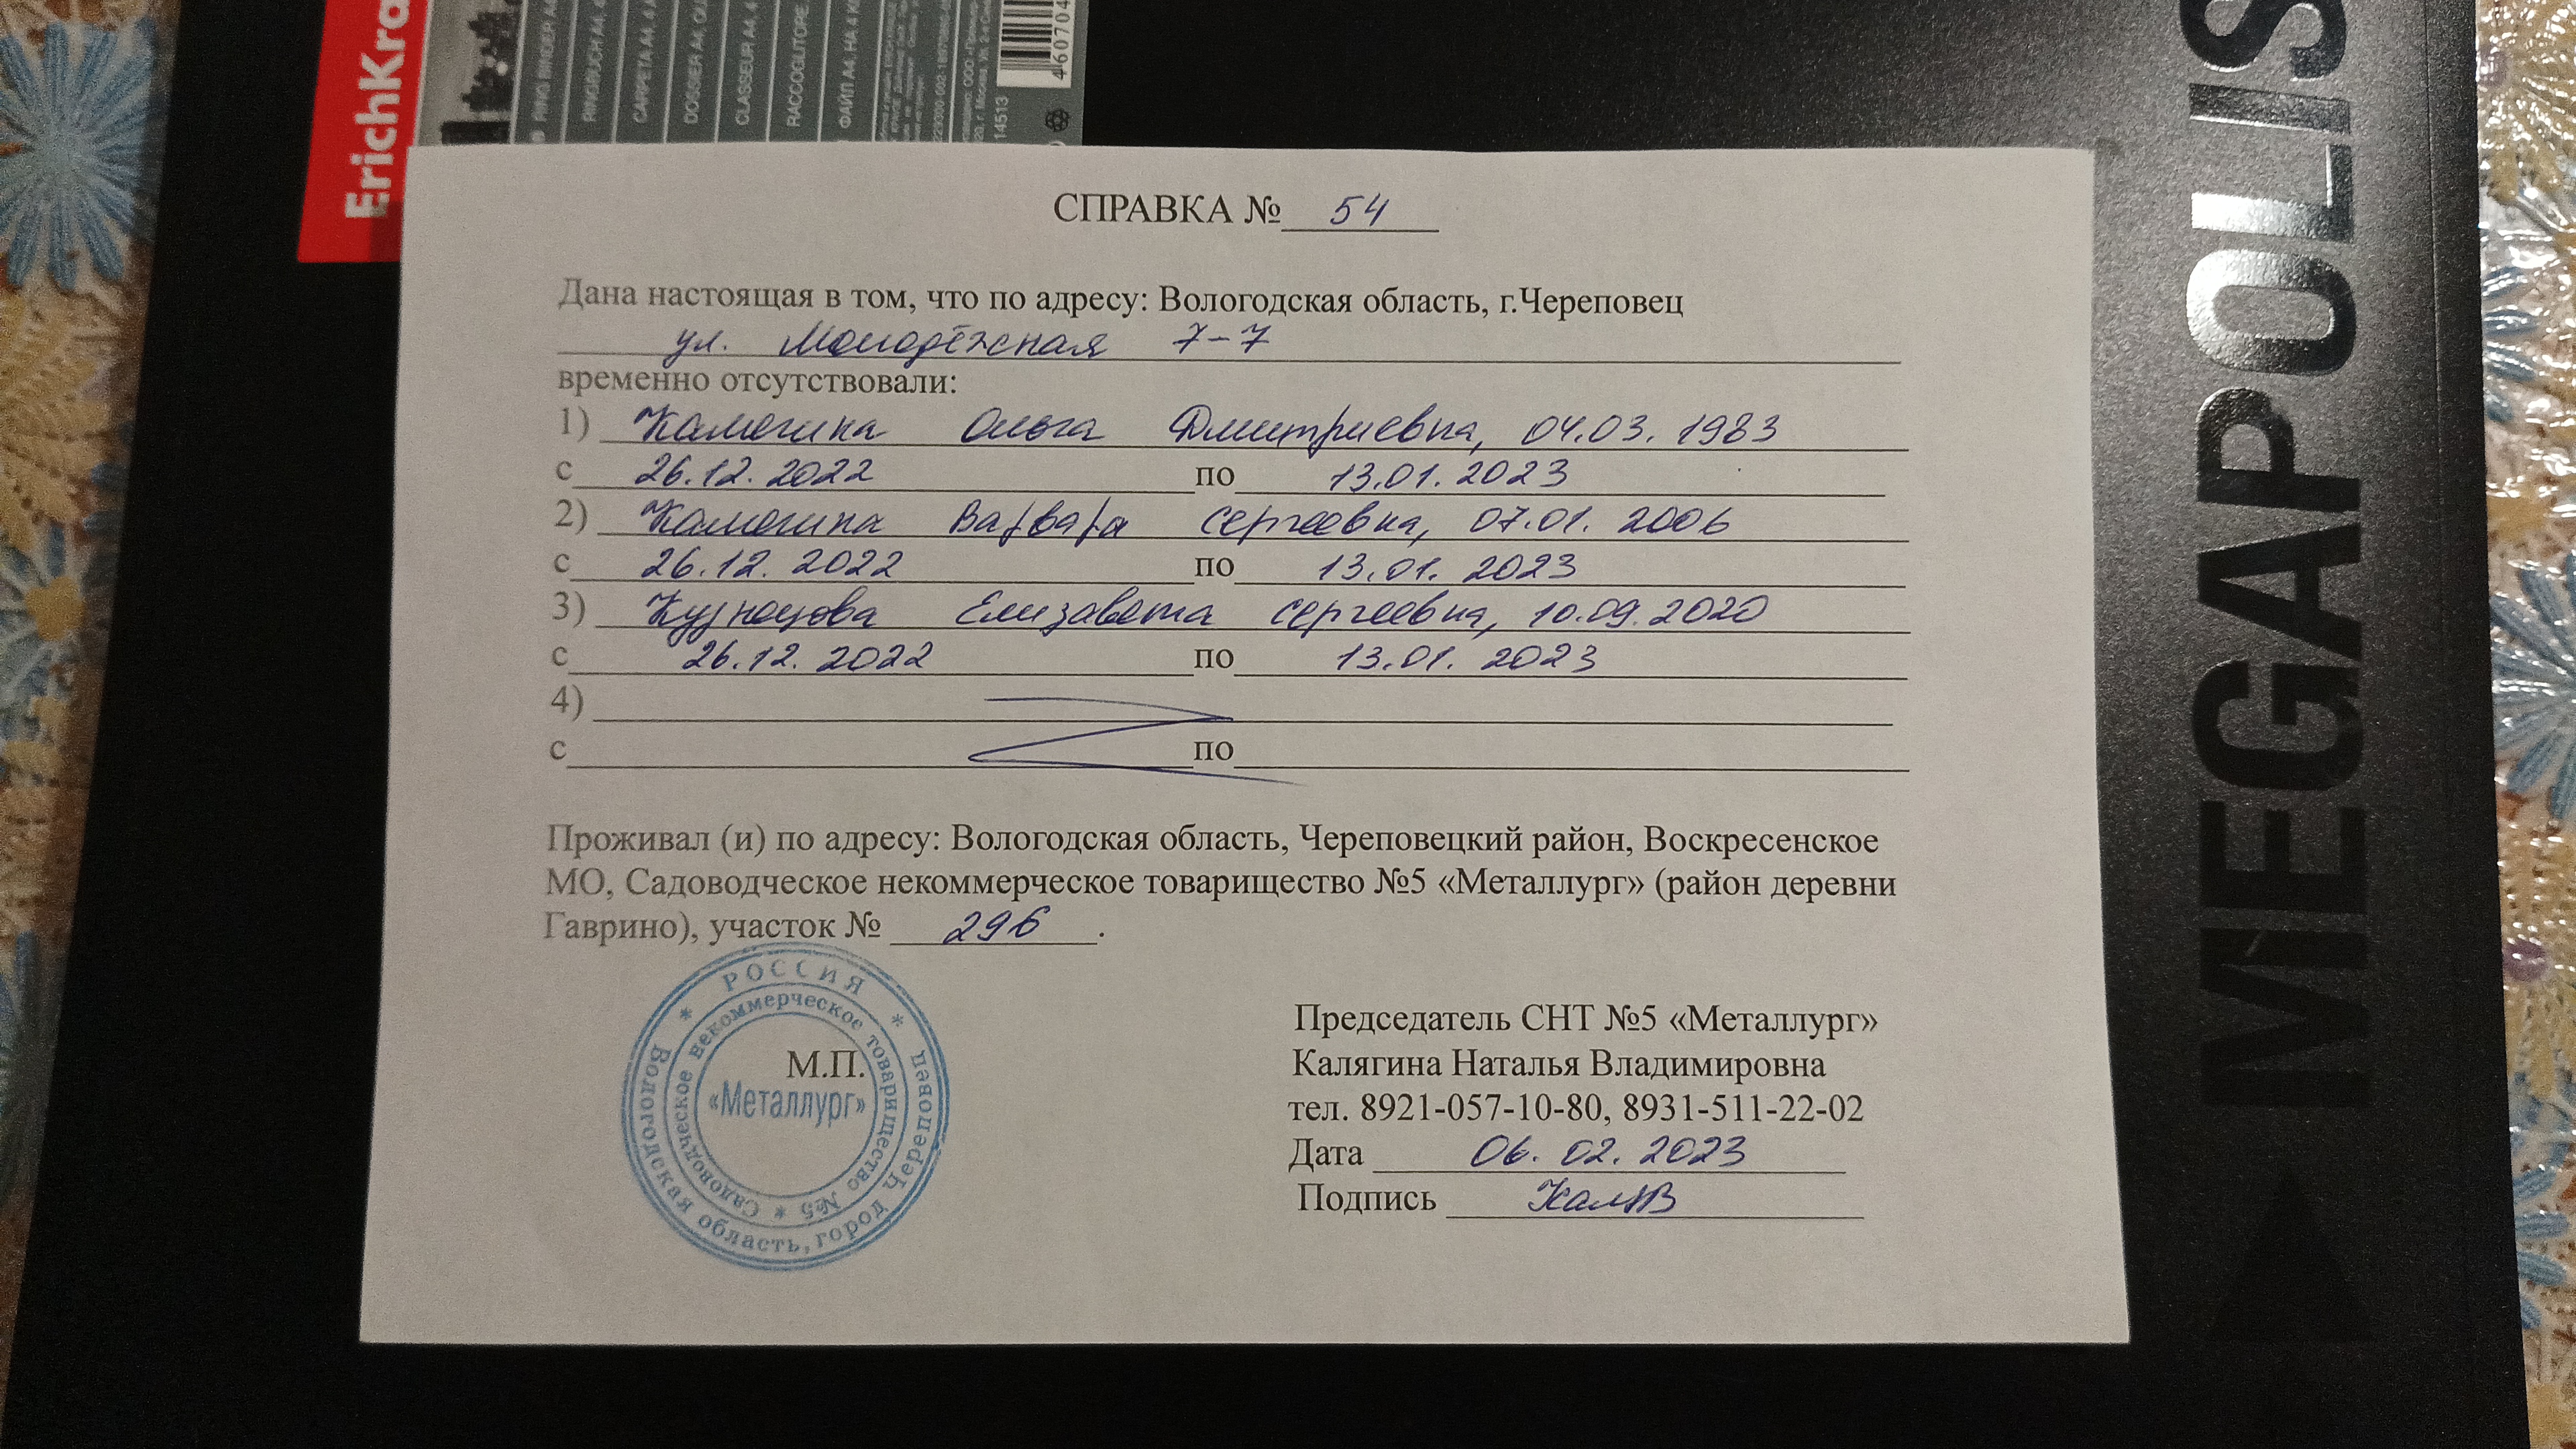 ErichKra
RING BINDER A4
RINGBUCH A4, 4
CARPETA A4, 4 A
DOSSIER A4, QU
CLASSEUR A4, 4
RACCOGLITORE
ФАЙЛ А4, НА 4 К
14513
4 60704
MEGAPOLIS
СПРАВКА № 54
Дана настоящая в том, что по адресу: Вологодская область, г.Череповец
ул. Молодёжная 7-7
временно отсутствовали:
1) Ольга Дмитриевна, 04.03.1983
с 26.12.2022 по 13.01.2023
2) Варвара Сергеевна, 07.01.2006
с 26.12.2022 по 13.01.2023
3) Кузнецова Елизавета Сергеевна, 10.09.2020
с 26.12.2022 по 13.01.2023
4)
с по
Проживал (и) по адресу: Вологодская область, Череповецкий район, Воскресенское
МО, Садоводческое некоммерческое товарищество №5 «Металлург» (район деревни
Гаврино), участок № 296.
* РОССИЯ *
Вологодская область, город Череповец
Садоводческое некоммерческое товарищество №5 *
М.П.
«Металлург»
Председатель СНТ №5 «Металлург»
Калягина Наталья Владимировна
тел. 8921-057-10-80, 8931-511-22-02
Дата 06.02.2023
Подпись